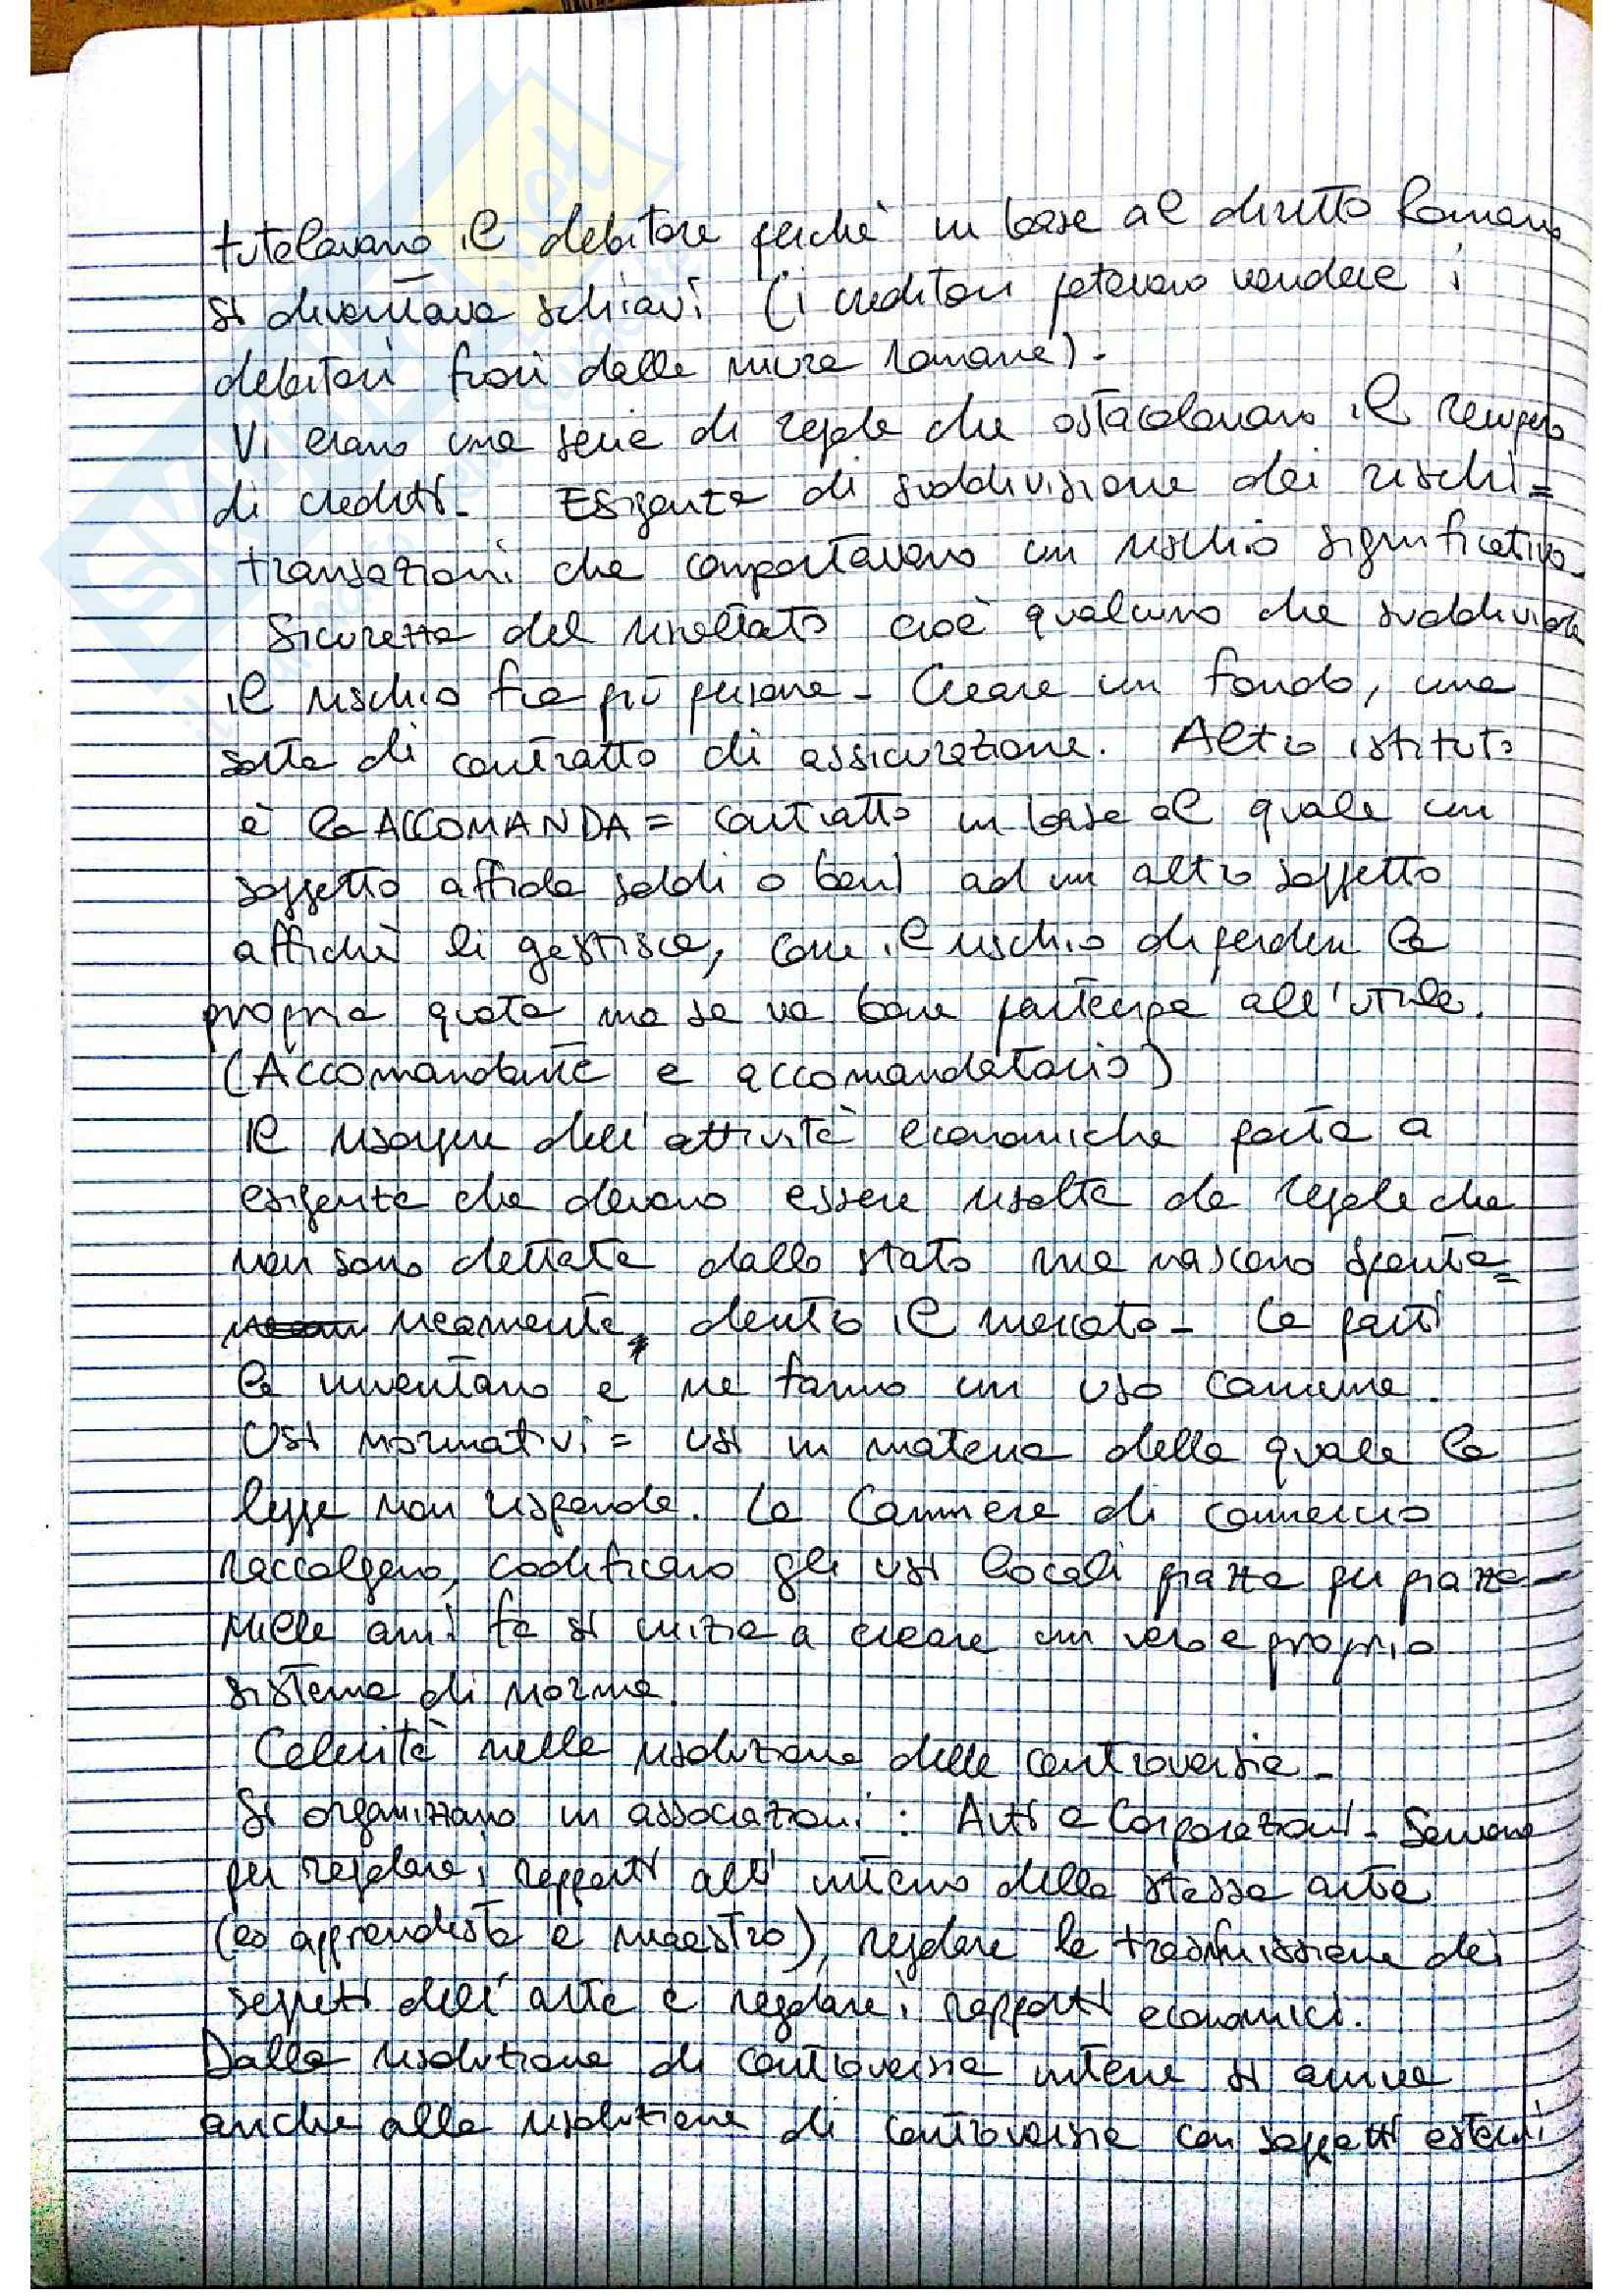 tutelavano il debitore perchè in base al diritto Romano
si diventava schiavi (i creditori potevano vendere i
debitori fuori dalle mura romane).
Vi erano una serie di regole che ostacolavano il recupero
di crediti. Esigenza di suddivisione dei rischi =
transazioni che comportavano un rischio significativo.
Sicurezza del risultato cioè qualcuno che suddivida
il rischio fra più persone - Creare un fondo, una
sorta di contratto di assicurazione. Altro istituto
è la ACCOMANDA = contratto in base al quale un
soggetto affida soldi o beni ad un altro soggetto
affichè li gestisca, con il rischio di perdere la
propria quota ma se va bene partecipa all'utile.
(Accomandante e accomandatario)
Il risorgere dell'attività economiche porta a
esigenze che devono essere risolte da regole che
non sono dettate dallo stato ma nascono sponta=
neamente, dentro il mercato - Le parti
le inventano e ne fanno un uso comune.
Usi normativi = usi in materia della quale la
legge non risponde. Le Cammere di commercio
raccolgono, codificano gli usi locali piazza per piazza -
Mille anni fa si inizia a creare un vero e proprio
sistema di norme.
Celerità nella risoluzione delle controversie -
Si organizzano in associazioni : Arti e Corporazioni - Servono
per regolare i rapporti all'interno della stessa arte
(es apprendista e maestro), regolare la trasmissione dei
segreti dell'arte e regolare i rapporti economici.
Dalla risoluzione di controversie interne si arriva
anche alla risoluzione di controversie con soggetti esterni